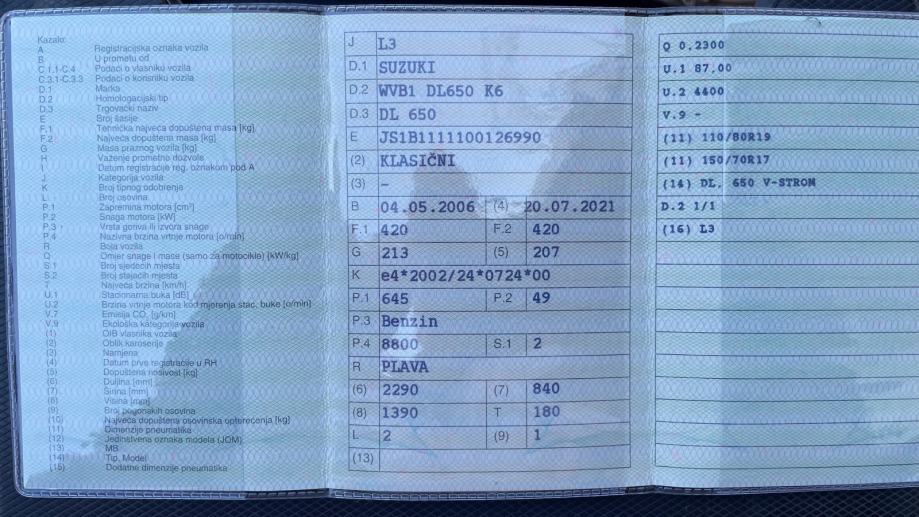 Kazalo:
A Registracijska oznaka vozila
B U prometu od
C.1.1-C.4 Podaci o vlasniku vozila
C.3.1-C.3.3 Podaci o korisniku vozila
D.1 Marka
D.2 Homologacijski tip
D.3 Trgovački naziv
E Broj šasije
F.1 Tehnička najveća dopuštena masa [kg]
F.2 Najveća dopuštena masa [kg]
G Masa praznog vozila [kg]
H Važenje prometne dozvole
I Datum registracije reg. oznakom pod A
J Kategorija vozila
K Broj tipnog odobrenja
L Broj osovina
P.1 Zapremina motora [cm³]
P.2 Snaga motora [kW]
P.3 Vrsta goriva ili izvora snage
P.4 Nazivna brzina vrtnje motora [o/min]
R Boja vozila
Q Omjer snage i mase (samo za motocikle) [kW/kg]
S.1 Broj sjedećih mjesta
S.2 Broj stajaćih mjesta
T Najveća brzina [km/h]
U.1 Stacionarna buka [dB]
U.2 Brzina vrtnje motora kod mjerenja stac. buke [o/min]
V.7 Emisija CO₂ [g/km]
V.9 Ekološka kategorija vozila
(1) OIB vlasnika vozila
(2) Oblik karoserije
(3) Namjena
(4) Datum prve registracije u RH
(5) Dopuštena nosivost [kg]
(6) Duljina [mm]
(7) Širina [mm]
(8) Visina [mm]
(9) Broj pogonskih osovina
(10) Najveća dopuštena osovinska opterećenja [kg]
(11) Dimenzije pneumatika
(12) Jedinstvena oznaka modela (JOM)
(13) MB
(14) Tip, Model
(15) Dodatne dimenzije pneumatika
J L3
D.1 SUZUKI
D.2 WVB1 DL650 K6
D.3 DL 650
E JS1B1111100126990
(2) KLASIČNI
(3) –
B 04.05.2006 (4) 20.07.2021
F.1 420 F.2 420
G 213 (5) 207
K e4*2002/24*0724*00
P.1 645 P.2 49
P.3 Benzin
P.4 8800 S.1 2
R PLAVA
(6) 2290 (7) 840
(8) 1390 T 180
L 2 (9) 1
(13)
Q 0,2300
U.1 87,00
U.2 4400
V.9 -
(11) 110/80R19
(11) 150/70R17
(14) DL. 650 V-STROM
D.2 1/1
(16) L3